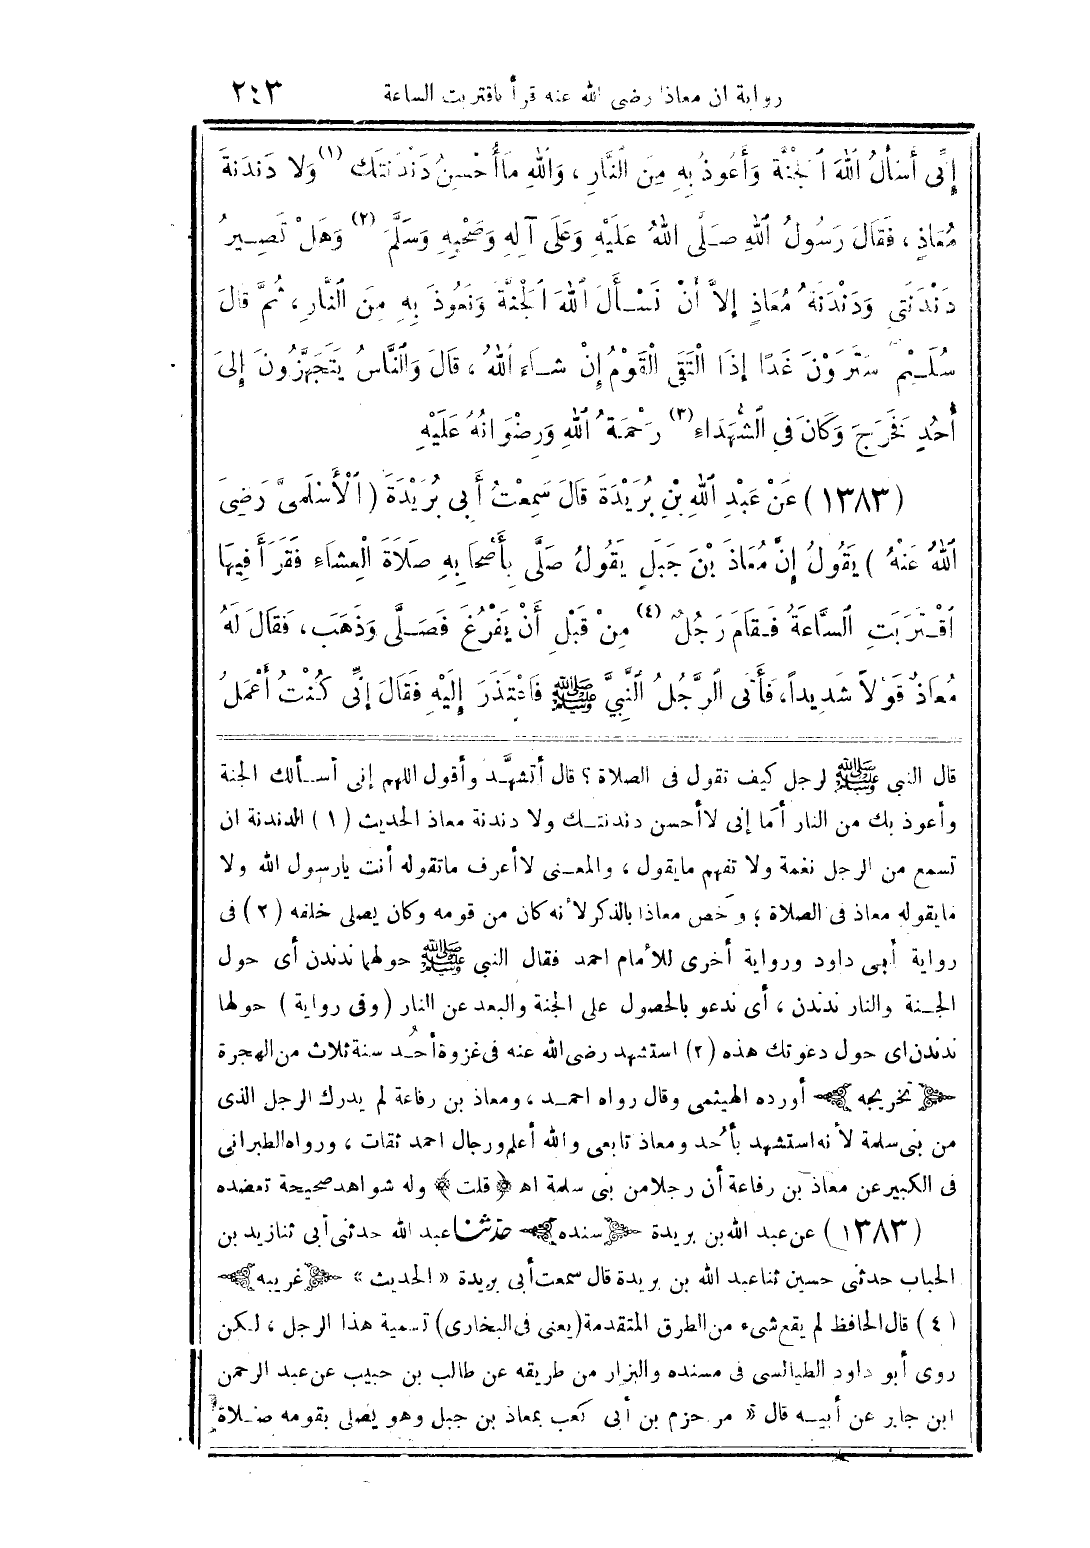 رواية ان معاذا رضى الله عنه قرأ باقتربت الساعة ٢٤٣
إِنِّى أَسْأَلُ اللهَ الْجَنَّةَ وَأَعُوذُ بِهِ مِنَ النَّارِ ، وَاللهِ مَا أُحْسِنُ دَنْدَنَتَكَ (١) وَلَا دَنْدَنَةَ
مُعَاذٍ ، فَقَالَ رَسُولُ اللهِ صَلَّى اللهُ عَلَيْهِ وَعَلَى آلِهِ وَصَحْبِهِ وَسَلَّمَ (٢) وَهَلْ تَصِيرُ
دَنْدَنَتِى وَدَنْدَنَةُ مُعَاذٍ إِلاَّ أَنْ نَسْأَلَ اللهَ الْجَنَّةَ وَنَعُوذَ بِهِ مِنَ النَّارِ ، ثُمَّ قَالَ
سُلَيْمٌ سَتَرَوْنَ غَدًا إِذَا الْتَقَى الْقَوْمُ إِنْ شَاءَ اللهُ ، قَالَ وَالنَّاسُ يَتَجَهَّزُونَ إِلَى
أُحُدٍ فَخَرَجَ وَكَانَ فِى الشُّهَدَاءِ (٣) رَحْمَةُ اللهِ وَرِضْوَانُهُ عَلَيْهِ
(١٣٨٣) عَنْ عَبْدِ اللهِ بْنِ بُرَيْدَةَ قَالَ سَمِعْتُ أَبِى بُرَيْدَةَ (الْأَسْلَمِىَّ رَضِىَ
اللهُ عَنْهُ ) يَقُولُ إِنَّ مُعَاذَ بْنَ جَبَلٍ يَقُولُ صَلَّى بِأَصْحَابِهِ صَلَاةَ الْعِشَاءِ فَقَرَأَ فِيهَا
اقْتَرَبَتِ السَّاعَةُ فَقَامَ رَجُلٌ (٤) مِنْ قَبْلِ أَنْ يَفْرُغَ فَصَلَّى وَذَهَبَ ، فَقَالَ لَهُ
مُعَاذٌ قَوْلاً شَدِيداً، فَأَتَى الرَّجُلُ النَّبِىَّ ﷺ فَاعْتَذَرَ إِلَيْهِ فَقَالَ إِنِّى كُنْتُ أَعْمَلُ
قال النبى ﷺ لرجل كيف تقول فى الصلاة ؟ قال أتشهَّد وأقول اللهم إنى أسألك الجنة
وأعوذ بك من النار أما إنى لاأحسن دندنتك ولا دندنة معاذ الحديث (١) الدندنة ان
تسمع من الرجل نغمة ولا تفهم مايقول ، والمعنى لاأعرف ماتقوله أنت يارسول الله ولا
مايقوله معاذ فى الصلاة ؛ وخص معاذا بالذكر لأنه كان من قومه وكان يصلى خلفه (٢) فى
رواية أبى داود ورواية أخرى للأمام احمد فقال النبى ﷺ حولها ندندن أى حول
الجنة والنار ندندن ، أى ندعو بالحصول على الجنة والبعد عن النار (وفى رواية ) حولها
ندندن اى حول دعوتك هذه (٢) استشهد رضى الله عنه فى غزوة أحُد سنة ثلاث من الهجرة
﴿تخريجه﴾ أورده الهيثمى وقال رواه احمد ، ومعاذ بن رفاعة لم يدرك الرجل الذى
من بنى سلمة لأنه استشهد بأُحد ومعاذ تابعى والله أعلم ورجال احمد ثقات ، ورواه الطبرانى
فى الكبير عن معاذ بن رفاعة أن رجلا من بنى سلمة اه ﴿قلت﴾ وله شواهد صحيحة تعضده
(١٣٨٣) عن عبد الله بن بريدة ﴿سنده﴾ حدثنا عبد الله حدثنى أبى ثنا زيد بن
الحباب حدثنى حسين ثنا عبد الله بن بريدة قال سمعت أبى بريدة « الحديث » ﴿غريبه﴾
(٤) قال الحافظ لم يقع شىء من الطرق المتقدمة (يعنى فى البخارى) تسمية هذا الرجل ، لكن
روى أبو داود الطيالسى فى مسنده والبزار من طريقه عن طالب بن حبيب عن عبد الرحمن
ابن جابر عن أبيه قال « مر حزم بن أبى كعب بمعاذ بن جبل وهو يصلى بقومه صلاة